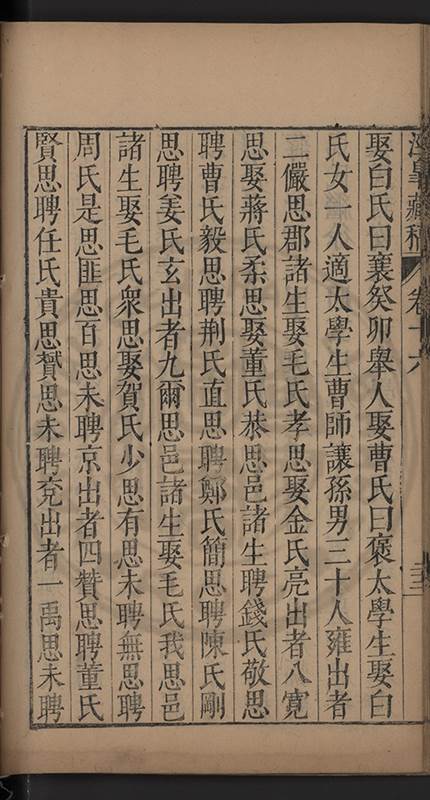 漢皐藏稿 卷十六
娶白氏曰襄癸卯舉人娶曹氏曰褒太學生娶白
氏女一人適太學生曹師讓孫男三十人雍出者
二儼思郡諸生娶毛氏孝思娶金氏亮出者八寬
思娶蔣氏柔思娶董氏恭思邑諸生聘錢氏敬思
聘曹氏毅思聘荆氏直思聘鄭氏簡思聘陳氏剛
思聘姜氏玄出者九爾思邑諸生娶毛氏我思邑
諸生娶毛氏衆思娶賀氏少思有思未聘無思聘
周氏是思匪思百思未聘京出者四贊思聘董氏
賢思聘任氏貴思贇思未聘兗出者一禹思未聘